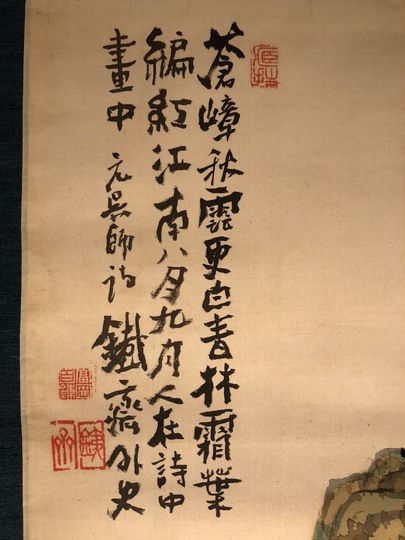 蒼嶂秋雲更白青林霜葉
編紅江南八月九月人在詩中
畫中 元吴師詩 鐵齋外史